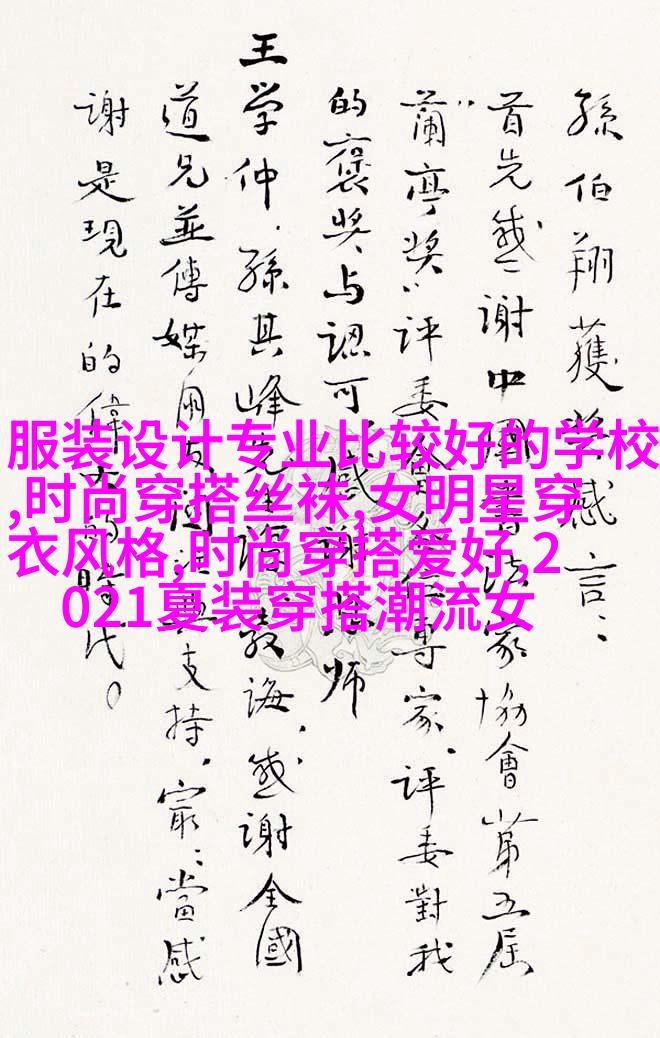 孫伯翔獲奖感言：
首先感謝中國書法家協會第五届
"蘭亭奖"评委專家、评委對我
的褒奖与認可，感謝恩师
王学仲、孫其峰先生教诲，感谢全國
道兄並傳媒朋友支持，最：當感
谢是現在的偉大的時代。
服装设计专业比较好的学校
,时尚穿搭丝袜,女明星穿
衣风格,时尚穿搭爱好,2
021夏装穿搭潮流女